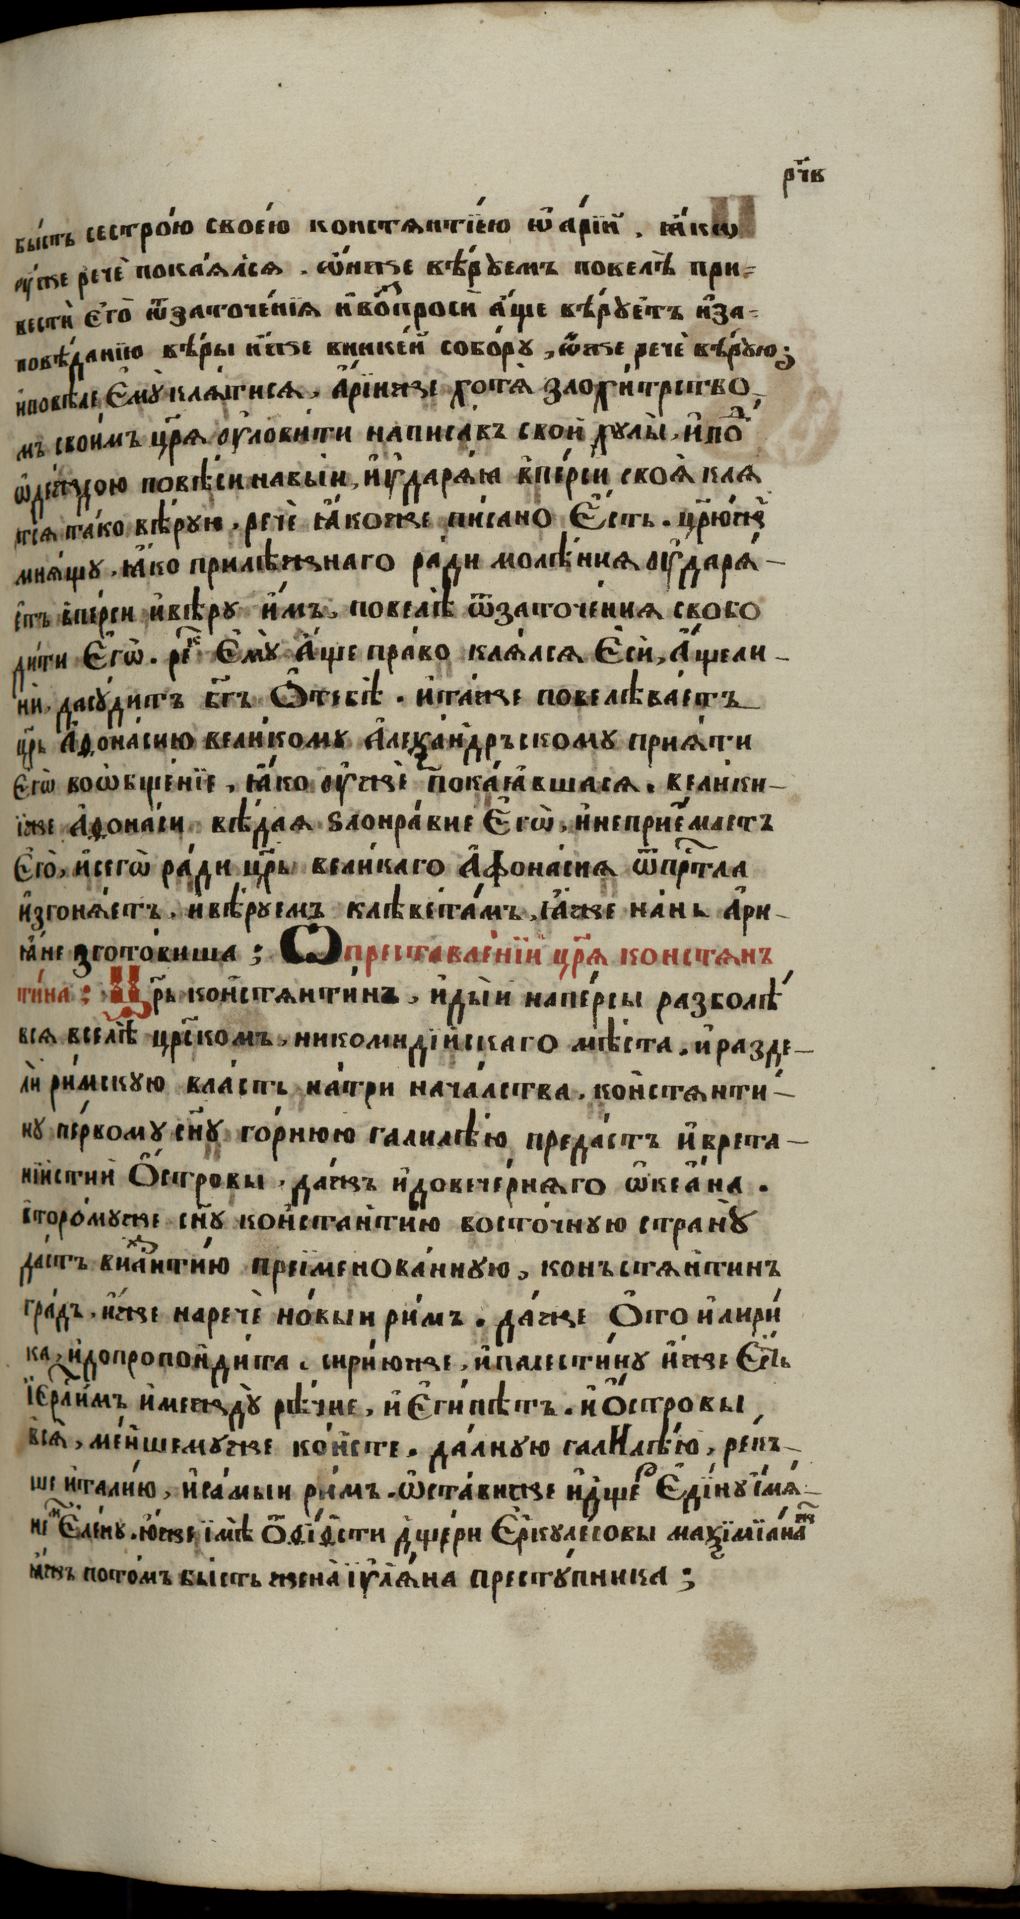 рч҃в
бы́сть сестро́ю свое́ю констѧнті́ею ѡ҆ а́рїи . ꙗ҆́кѡ
оу҆́же речѐ пока́ѧлсѧ . ѡ҆́нже вѣ́руемъ повелѣ̀ при=
вестѝ є҆го̀ ѿзаточе́нїѧ и҆вопросѝ а҆́ще вѣ́руетъ и҆за=
повѣ́данїю вѣ́ры и҆́же вникеи собо́ру , ѡ҆́нже речѐ вѣ́рую ;
и҆повелѣ є҆мꙋ̀ клѧ́тисѧ . а҆́рїинже хотѧ̀ злохи́трство
мъ свои́мъ цр҃ѧ оу҆лови́ти написа́въ своѝ хулы̀ , и҆по
ѡ҆де́ждою повѣ́си навы́и , и҆у҆дарѧ́ѧ в̾пе́рси своѧ̀ клѧ
тсѧ та́ко вѣ́рую . речѐ ꙗ҆́коже пи́сано є҆́сть . цр҃ю́же
мнѧ́щу . ꙗ҆́ко прилѣ́жнаго ра́ди молѣ́нїѧ оу҆дарѧ́ –
етъ в̾пе́рси и҆вѣ́ру и҆́мъ , повелѣ̀ ѿзаточе́нїѧ свобо
ди́ти є҆гѡ̀ . ре҃ч є҆мꙋ̀ а҆́ще пра́во клѧ́лсѧ є҆сѝ , а҆́щели –
нѝ , дасу́дитъ бг҃ъ ѻ҆тебѣ̀ . и҆та́же повелѣва́етъ
цр҃ь а҆ѳона́сию вели́кому а҆леѯа́ндръскому приѧ́ти
є҆гѡ̀ воѡбще́нїе , ꙗ҆́ко оу҆жѐ пока́ѧвшасѧ . вели́ки –
їже а҆ѳона́си вѣ́даѧ ѕлонра́вие є҆гѡ̀ , и҆неприе́млетъ
є҆го̀ , и҆сегѡ̀ ра́ди цр҃ь вели́каго а҆фона́сиѧ ѿпрⷭ҇тла
и҆згонѧ́етъ . и҆вѣ́руемъ клѣвета́мъ , ꙗ҆́же на́нь а҆ри –
ꙗ́не зготовиша ; Ѡ преставле́нїи цр҃ѧ констѧнъ
ти́на : Цр҃ь констѧнти́нъ , и҆ды́и напе́рсы разболѣ́
всѧ вселѣ̀ цр҃ском , никомиді́йскаго мѣ́ста . и҆разде –
лѝ ри́мскую вла́сть натри нача́лства . констѧнти́ –
ну пе́рвому сн҃у го́рнюю галилѣ́ю преда́стъ и҆врета –
ні́йстий ѻ҆́стровы . да́жъ и҆довече́рнѧго ѡ҆кеа́на .
второ́муже сн҃у конста́нтию восто́чную страну̀
да́стъ виза́нтию преименова́нную , конъстѧнтинъ
гра́дъ , и҆́же наречѐ но́выи ри́мъ . да́же до́ самого и҆лири́
ка , и҆допропонди́та . сири́юже , и҆палести́ну и҆́же є҆́сть
їерⷭ҇ли́мъ и҆между̀ рѣ́чие , и҆ є҆ги́петъ . и҆ ѻ҆́стровы
всѧ̀ , ме́ншемуже ко́нсте . да́лную галилѣ́ю , рекъ –
ше и҆та́лию , и҆са́мыи ри́мъ . ѡ҆ста́вилже и҆дще́рь є҆ди́ну и҆мѧ –
не҃м є҆ле́ну . ю҆́же і҆мѣ̀ ѿ ѳі́ѳїсти дще́ри є҆ркуле́совы маѯимїа́на
ꙗ́жъ пото́мъ бы́сть жена̀ і҆у҆лїѧ́на престу́пника ;